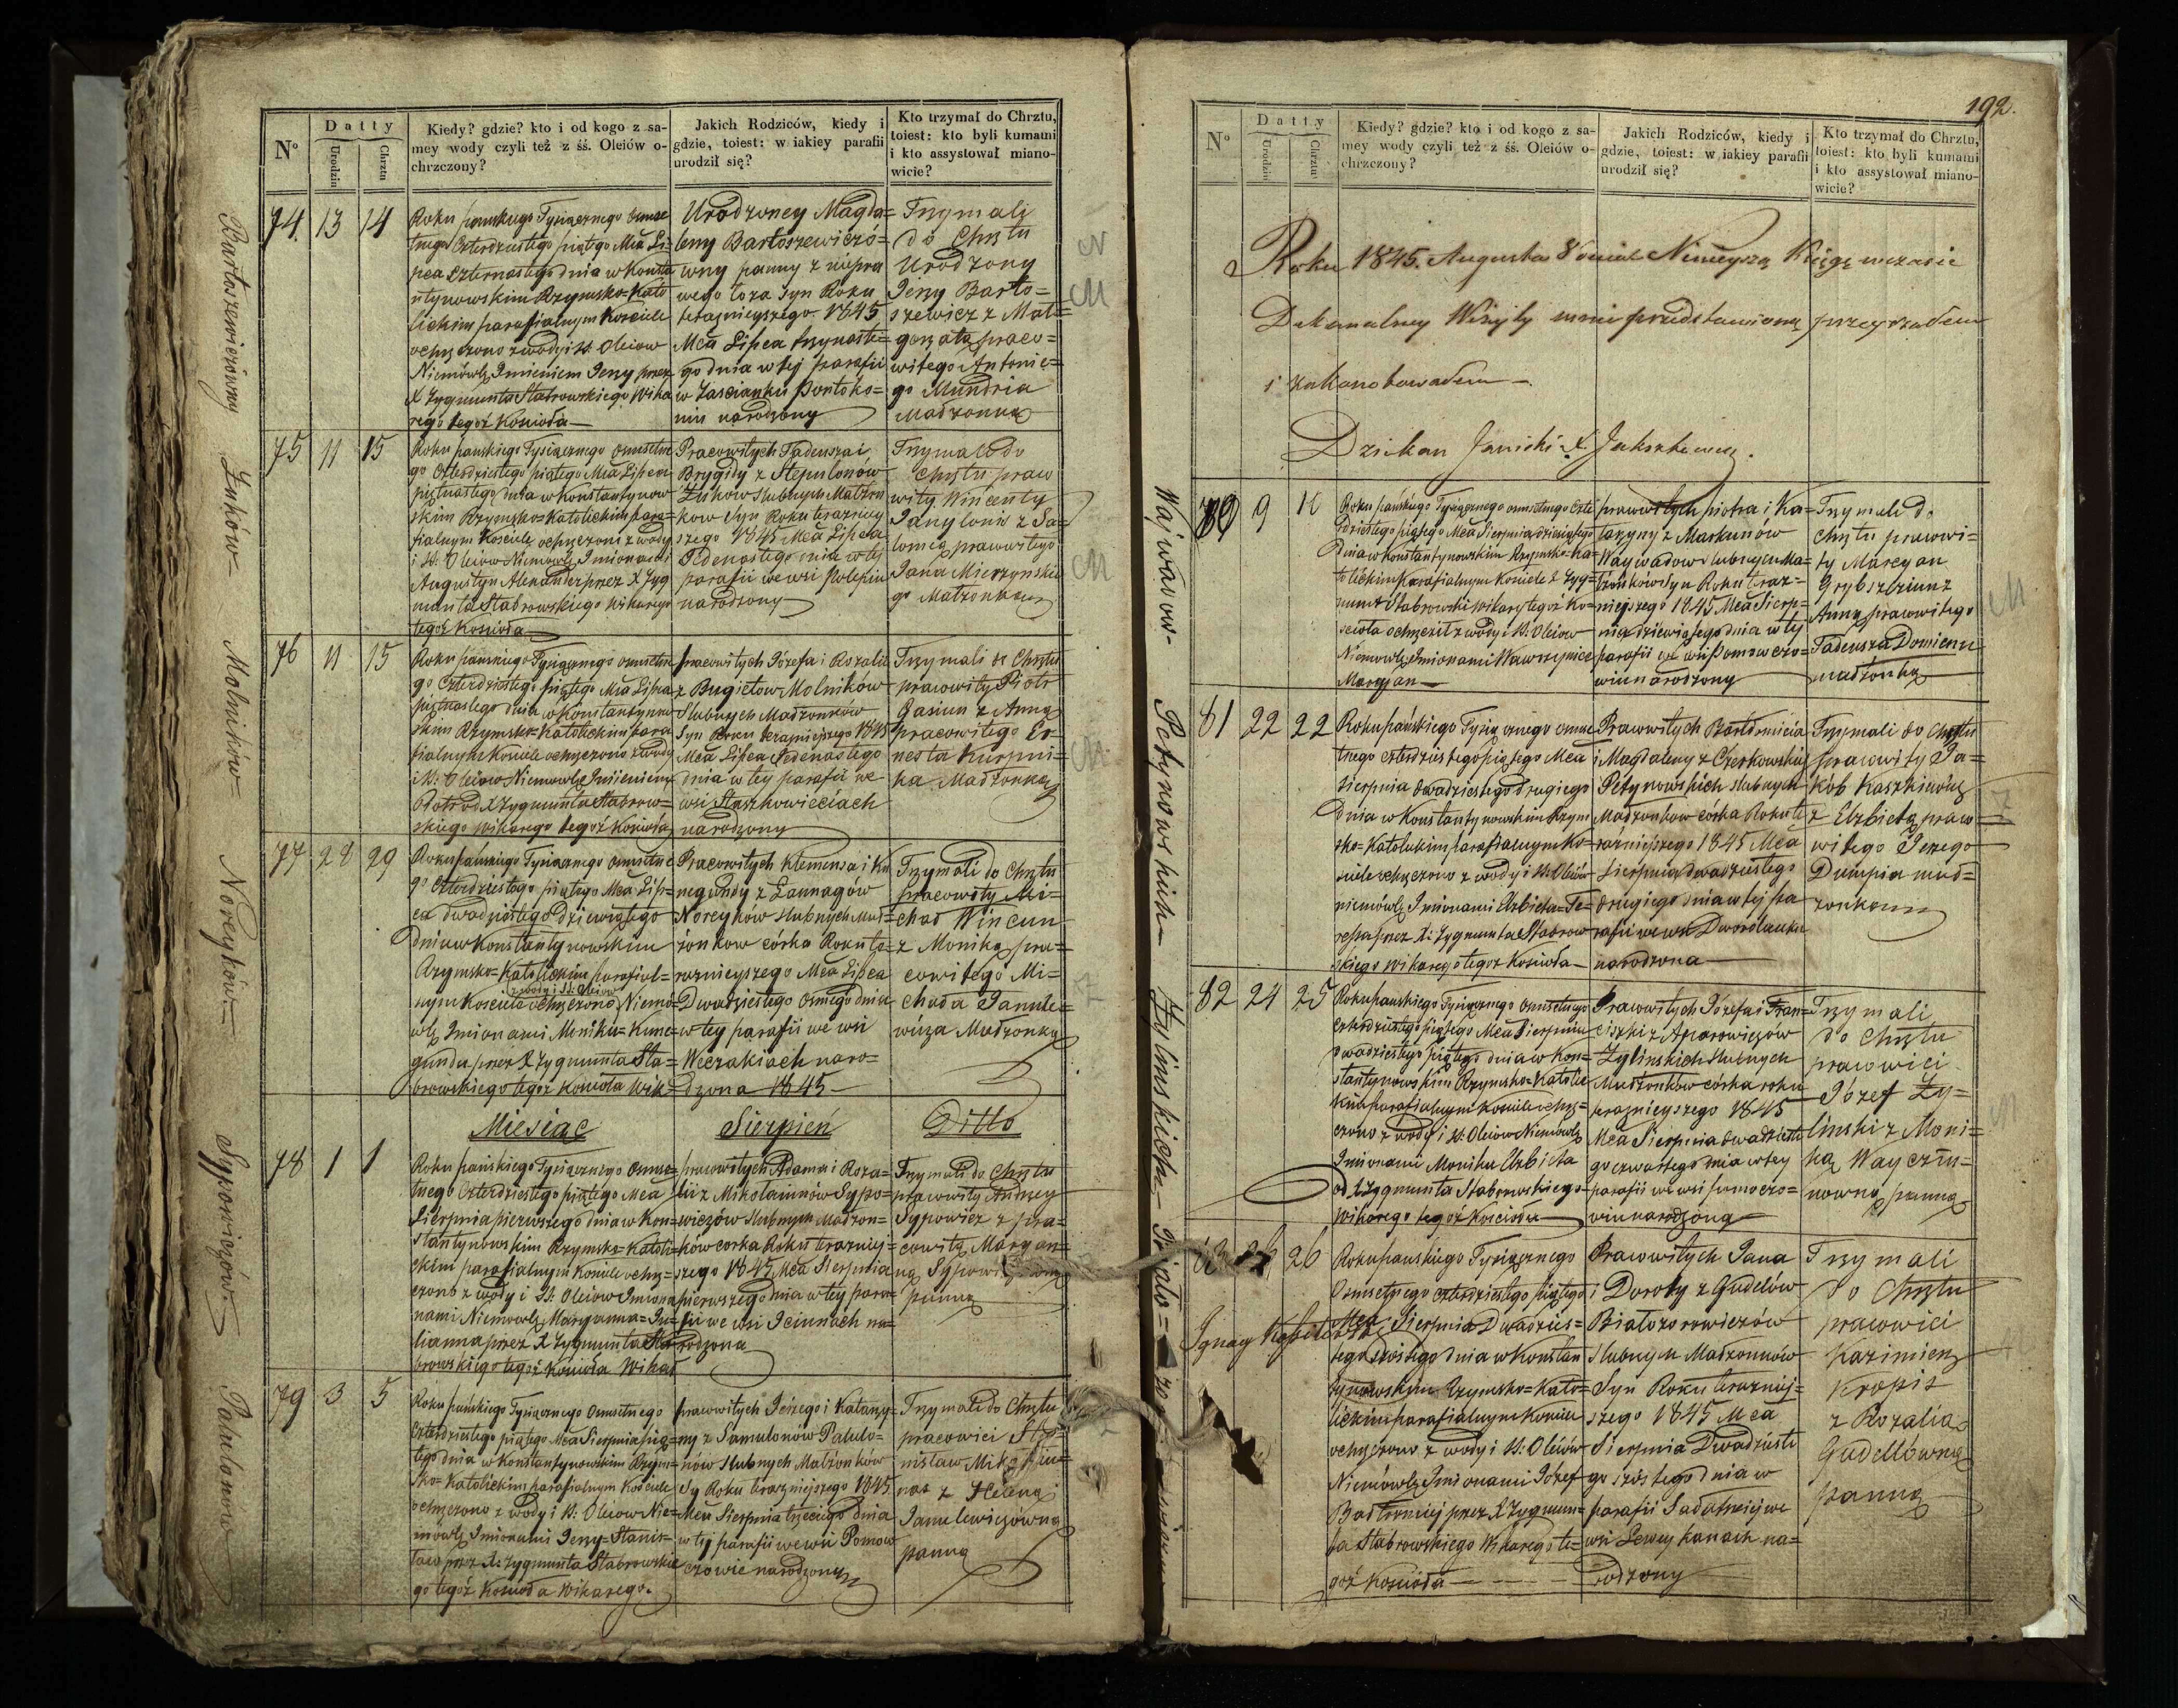 N°
Datty
Urodzin
Chrztu
Kiedy? gdzie? kto i od kogo z sa-
mey wody czyli też z śś. Oleiów o-
chrzczony?
Jakich Rodziców, kiedy i
gdzie, toiest: w iakiey parafii
urodził się?
Kto trzymał do Chrztu,
toiest: kto byli kumami
i kto assystował miano-
wicie?
Bartoszewiczówny
74. 13 14
Roku pańskiego Tysiącznego
tnego Czterdziestego piątego Mca Li-
pca czternastego dnia w Konsta
ntynowskim Rzymsko=Kato
lickim parafialnym Kosciele
ochrzczono z wody i SS. Oleiow
Niemowlę Imieniem Jerzy przez
X Zygmunta Stabrowskiego Wika
rego tegoż Koscioła
Urodzoney Magda=
leny Bartoszewiczó=
wny panny z niepra
wego łoża syn Roku
teraznieyszego 1845
Mca Lipca trzynaste=
go dnia w tej parafii
w Zascianku
narodzony
Trzymali
do Chrztu
Urodzony
Jerzy Barto=
szewicz z Mał=
gorzatą praco=
witego Antonie=
go Mundria
Małżonką
Żuków
75 11 15
Roku pańskiego Tysiącznego osmsetne
go Czterdziestego piątego Mca Lipca
piętnastego dnia w Konstantynow
skim Rzymsko=Katolickim para=
fialnym Kosciele ochrzczono z wody
i SS. Oleiow Niemowlę Imionami
Augustyn Alexander przez X Zyg
munta Stabrowskiego Wikarego
tegoż Kosciola
Pracowitych Tadeusza i
Brygidy z Stepulonów
Żukow slubnych Małżon
kow Syn Roku teraźniey
szego 1845 Mca Lipca
Jedenastego dnia w tej
parafii we wsi
narodzony
Trzymali do
chrztu praco
wity Wincenty
z Sa=
lomeą pracowitego
Jana
go Małżonką
Molników
76 11 15
Roku pańskiego Tysiącznego osmsetne
go Czterdziestego piątego Mca Lipca
piętnastego dnia w Konstantynow
skim Rzymsko=Katolickim para
fialnym Kosciele ochrzczono z wody
i SS. Oleiow Niemowlę Imieniem
X Zygmunta Stabrow=
skiego Wikarego tegoż Kosciola
pracowitych Józefa i Rozalii
z Bugietow Molników
Slubnych Małżonków
Syn Roku teraznieyszego 1845
Mca Lipca Jedenastego
dnia w tey parafii we
wsi
narodzony
Trzymali do Chrztu
pracowity Piotr
Gasiun z Anną
pracowitego Er=
nesta Kurpni=
ka Małżonką
Noreyków
77 28 29
Roku pańskiego Tysiącznego osmsetne
go Czterdziestego piątego Mca Lip=
ca dwadziestego dziewiątego
dnia w Konstantynowskim
Rzymsko=Katolickim parafial=
z wody i SS. Oleiow
nym Kosciele ochrzczono Niemo=
wlę Imionami Monika=Kune=
gunda przez X Zygmunta Sta=
browskiego tegoż Kosciola Wik
Pracowitych Klemensa i Ku
negundy z Łannagów
Noreyków slubnych Mał=
żonkow córka Roku te=
raznieyszego Mca Lipca
Dwadziestego osmego dnia
w tey parafii we wsi
naro=
dzona 1845
Trzymali do Chrztu
pracowity Mi=
chał Wincun
z Moniką pra=
cowitego Mi=
chała Janule=
wicza Małżonką
Miesiąc Sierpień Ditto
Sypowiczów
78 1 1
Roku pańskiego Tysiącznego osmse=
tnego Czterdziestego piątego Mca
Sierpnia pierwszego dnia w Kon=
stantynowskim Rzymsko=Katoli=
ckim parafialnym Kosciele ochrz=
czono z wody i SS. Oleiow Imiona
nami Niemowlę Maryanna=Ju=
lianna przez X Zygmunta Sta
browskiego tegoż Kosciola Wikar
pracowitych Adama i Roza=
lii z Mikołaiunów Sypo=
wiczów slubnych Małżon=
ków corka Roku teraźniej=
szego 1845 Mca Sierpnia
pierwszego dnia w tey para=
fii we wsi Jciunach na=
rodzona
Trzymali do Chrztu
pracowity Andrzey
Sypowicz z pra=
cowitą Maryan=
ną
panną
Palulonów
79 3 5
Roku pańskiego Tysiącznego Osmsetnego
Czterdziestego piątego Mca Sierpnia pią=
tego dnia w Konstantynowskim Rzym=
sko=Katolickim parafialnym Kosciele
ochrzczono z wody i SS. Oleiow Nie=
mowlę Imionami Jerzy=Stanis=
ław przez X. Zygmunta Stabrowskie
go tegoż Kosciola Wikarego.
pracowitych Jerzego i Katarzy=
ny z Samulonow Palulo=
nów slubnych Małżonków
Sy Roku teraznieyszego 1845
Mca Sierpnia trzeciego dnia
w tej parafii we wsi Pomow
czowie narodzony
Trzymali do Chrztu
pracowici Sta=
nisław
z Heleną
Janulewiczówną
panną
192.
N°
Datty
Urodzin
Chrztu
Kiedy? gdzie? kto i od kogo z sa-
mey wody czyli też z śś. Oleiów o-
chrzczony?
Jakich Rodziców, kiedy i
gdzie, toiest: w iakiey parafii
urodził się?
Kto trzymał do Chrztu,
toiest: kto byli kumami
i kto assystował miano-
wicie?
Roku 1845. Augusta 8 dnia Ninieyszą Księgę w czasie
Dekanalney Wizyty mnie przedstawioną przeyrzałem
i zakonotowałem.
Dziekan X.
80 9 10
Roku pańskiego Tysiącznego osmsetnego Czte
rdziestego piątego Mca Sierpnia dziesiątego
dnia w Konstantynowskim Rzymsko=Ka=
tolickim Parafialnym Kosciele X Zyg=
munt Stabrowski Wikary tegoż Ko=
scioła ochrzcził z wody i SS. Oleiow
Niemowlę Imionami Wawrzyniec
Maryan
pracowitych Piotra i Ka=
tarzyny z Markunów
Waywadow slubnych Ma=
łżonkow Syn Roku teraz=
niejszego 1845 Mca Sierp=
nia dziewiątego dnia w tej
parafii we wsi Pomowczo=
wie narodzony
Trzymali do
chrztu pracowi=
ty Marcyan
z
Anną pracowitego
Tadeusza
małżonką
Petynowskich
81 22 22
Roku pańskiego Tysiącznego osmse
tnego czterdziestego piątego Mca
Sierpnia dwadziestego drugiego
dnia w Konstantynowskim Rzym
sko=Katolickim parafialnym Ko=
sciele ochrzczono z wody i SS. Oleiów
niemowlę Imionami Elzbieta=Te=
ressa przez X: Zygmunta Stabrow
skiego Wikarego tegoż Kosciola
Pracowitych Bartłomieia
i Magdaleny z Czerkowskich
Petynowskich slubnych
Małżonkow córka Roku te
raźniéjszego 1845 Mca
Sierpnia dwadziestego
drugiego dnia w tej pa
rafii we wsi
narodzona
Trzymali do Chrztu
pracowity Ja=
kób Kaszkiewicz
z Elzbietą praco
witego Jerzego
małł=
żonkom
Żulinskich
82 24 25
Roku pańskiego Tysiącznego Osmsetnego
Czterdziestego piątego Mca Sierpnia
dwadziestego piątego dnia w Kon=
stantynowskim Rzymsko=Katolic
kim parafialnym Kosciele ochrz=
czono z wody i SS. Oleiow Niemowlę
Imionami Monika Elzbieta
od X Zygmunta Stabrowskiego
Wikarego tegoż Kosciola
Pracowitych Józefa i Fran=
ciszki z
Zylinskich slubnych
Małżonków córka roku
teraznieyszego 1845
Mca Sierpnia dwadzieste
go czwartego dnia w tey
parafii we wsi Pomoczo=
wie narodzona
Trzymali
do Chrztu
pracowici
Józef Zy=
linski z Moni=
ką
panną
83 26 26
Roku pańskiego Tysiącznego
Osmsetnego czterdziestego piątego
Mca Sierpnia Dwadzies=
tego szóstego dnia w Konstan
tynowskim Rzymsko=Kato=
lickim parafialnym Kosciele
ochrzczono z wody i SS: Oleiów
Niemowlę Imionami Józef
Bartłomiej przez X Zygmun=
ta Stabrowskiego Wikarego te=
goż Kosciola
Pracowitych Jana
i Doroty z Gudelow
Białozorowiczów
slubnych Małżonków
Syn Roku teraźniej=
szego 1845 Mca
Sierpnia Dwadzieste
go szóstego dnia w
parafii
wsi na=
rodzony
Trzymali
do Chrztu
pracowici
Kazimierz
Kropis
z Rozalią
Gudellówną
panną